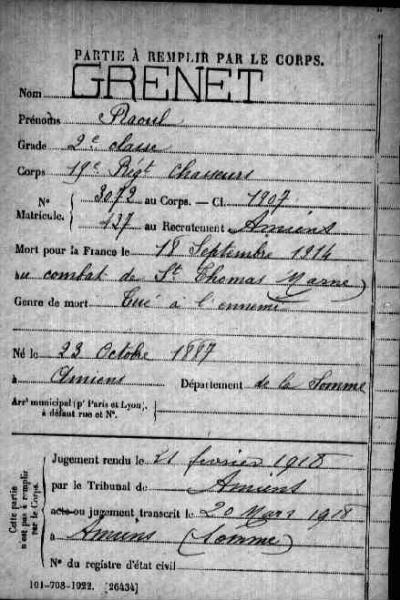 PARTIE À REMPLIR PAR LE CORPS.
Nom GRENET
Prénoms Raoul
Grade 2e classe
Corps 19e Régt Chasseurs
N° 3072 au Corps. — Cl. 1907
Matricule. 437 au Recrutement Amiens
Mort pour la France le 18 Septembre 1914
au combat de St Thomas (Marne)
Genre de mort Tué à l'ennemi
Né le 23 Octobre 1887
à Amiens Département de la Somme
Arrt municipal (pr Paris et Lyon),
à défaut rue et N°.
Cette partie
n'est pas à remplir
par le Corps.
Jugement rendu le 21 février 1918
par le Tribunal de Amiens
acte ou jugement transcrit le 20 Mars 1918
à Amiens (Somme)
N° du registre d'état civil
101-708-1922. [26434]